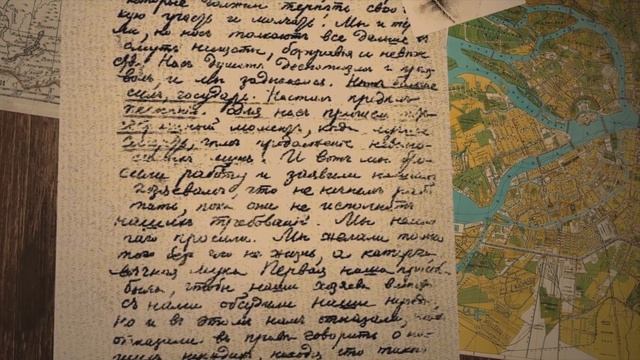 которые должны терпеть свою
кую участь и молчать. Мы и тер
ли, но насъ толкаютъ все дальше въ
омутъ нищеты, безправья и невѣж
ства. Насъ душитъ деспотизмъ и про
волъ и мы задыхаемся. Нѣтъ больше
силъ, государь. Насталъ предѣлъ
терпѣнiя. Для насъ пришелъ тотъ
страшный моментъ, когда лучше
смерть, чѣмъ продолженiе невыно
симыхъ мукъ. И вотъ мы бро
сили работу и заявили нашимъ
хозяевамъ что не начнемъ рабо
тать, пока они не исполнятъ
нашихъ требованiй. Мы немно
гаго просили. Мы желали только
того безъ чего не жизнь, а каторга
вѣчная мука. Первая наша просьба
была, чтобы наши хозяева вмѣстѣ
съ нами обсудили наши нужды,
но и въ этомъ намъ отказали,
отказали въ правѣ говорить о на
шихъ нуждахъ, находя что такого